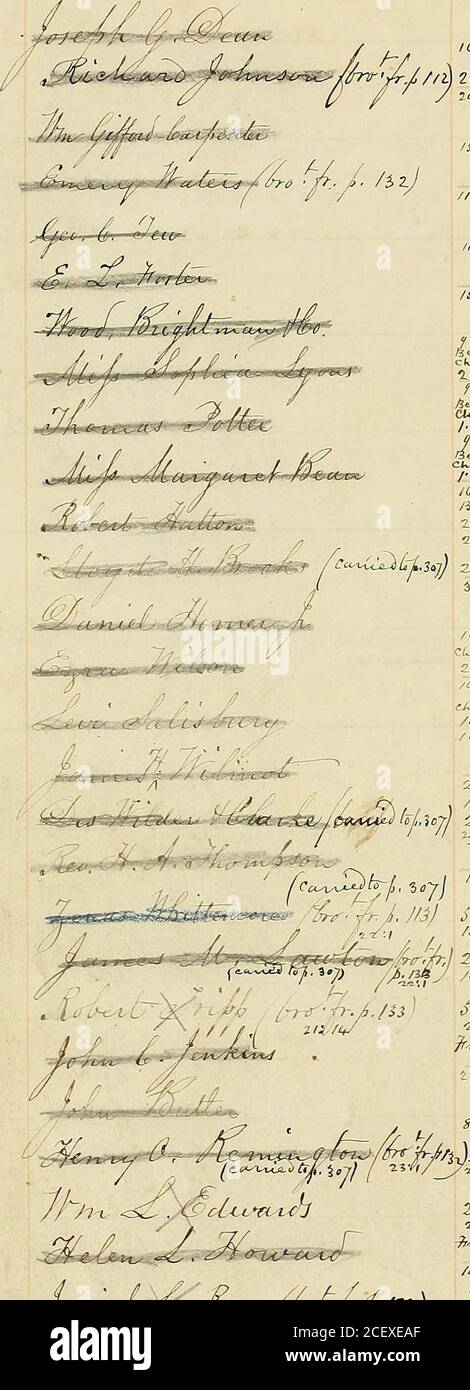 Joseph G. Dean
Richard Johnson (bro't fr. p 112)
Wm Gifford Carpenter
Emery Waters (bro't fr. p. 132)
Geo. C. Tew
E. L. Foster
Wood, Brightman & Co.
Miss Sophia Lyons
Thomas Potter
Miss Margaret Bean
Robert Hatton
Lloyd H. Brock (carried to p. 307)
Daniel Homer Jr
Ezra Wilson
Levi Salisbury
James H. Wilmot
Drs Wilder & Clarke (carried to p. 307)
Rev. H. A. Thompson
(carried to p. 307)
Zenas Whittemore (bro't fr. p. 113)
22:1
James M. Lawton (bro't fr. p. 133)
(carried to p. 307) 22:1
Robert Tripp (bro't fr. p. 133)
212/14
John C. Jenkins
John Butler
Henry C. Remington (bro't fr p 132)
(carried to p. 307) 23:1
Wm L. Edwards
Helen L. Howard
alamy
Image ID: 2CEXEAF
www.alamy.com